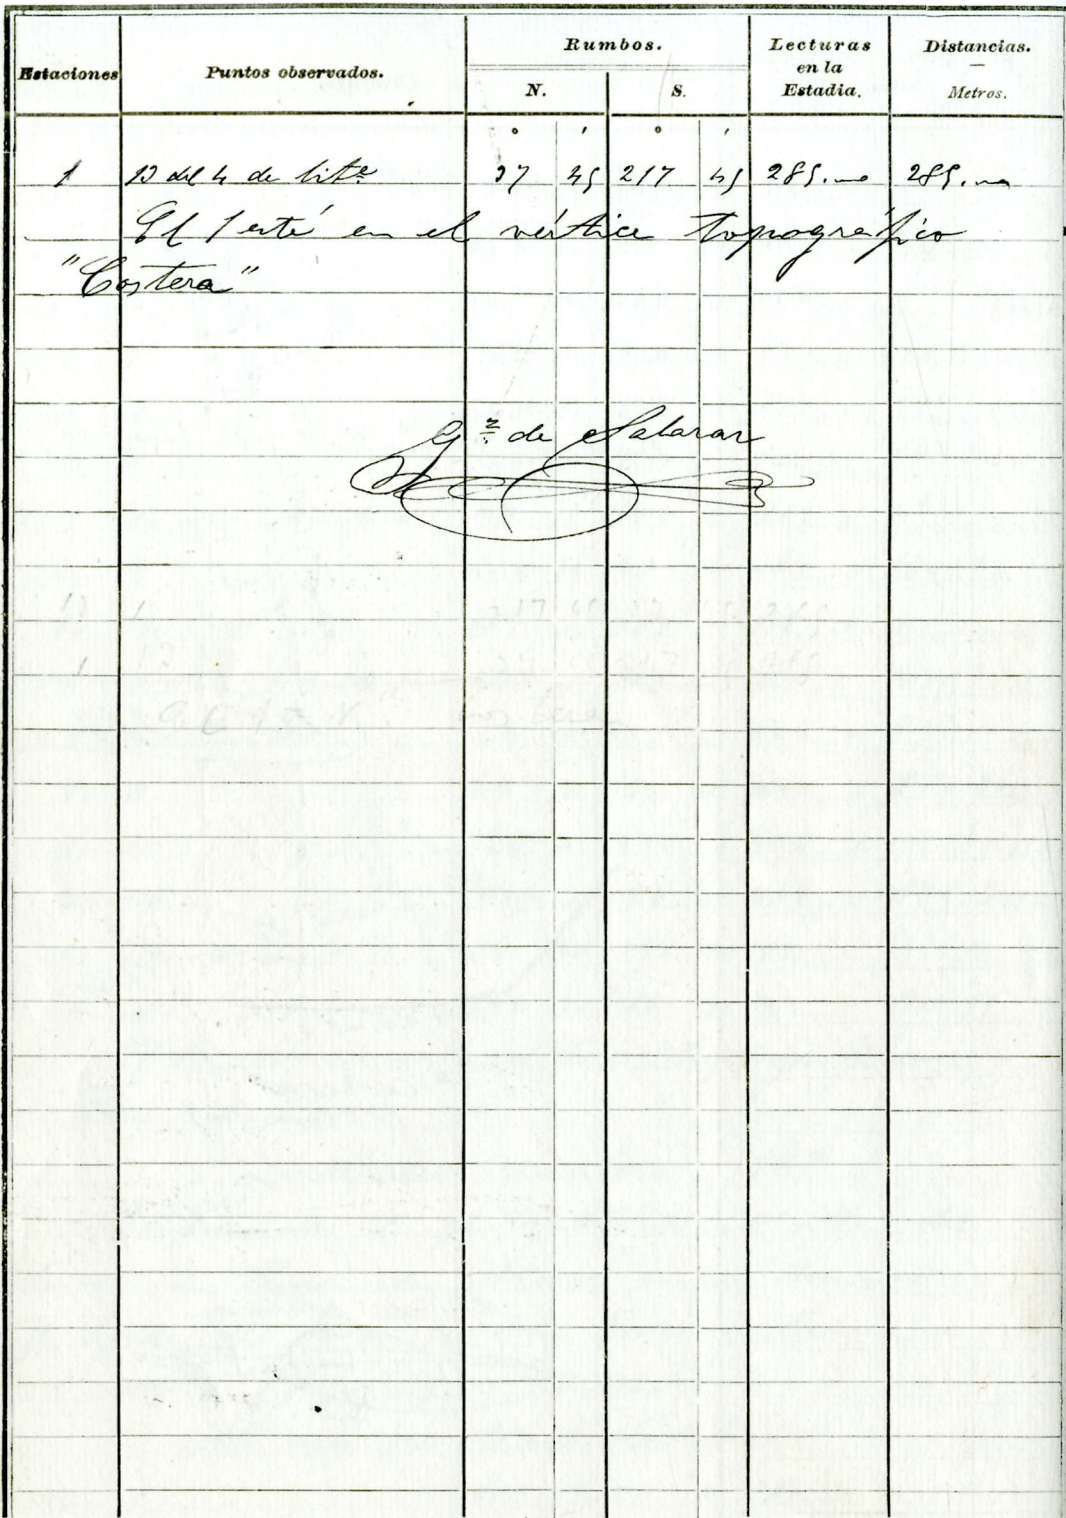 Estaciones Puntos observados. Rumbos. Lecturas en la Estadia. Distancias. — Metros.
N. S.
° ′ ° ′
1 13 del 4 de lit.ª 37 45 217 45 285. 285.
El 1 esté en el vértice topográfico
"Costera"
G.ª de Salazar